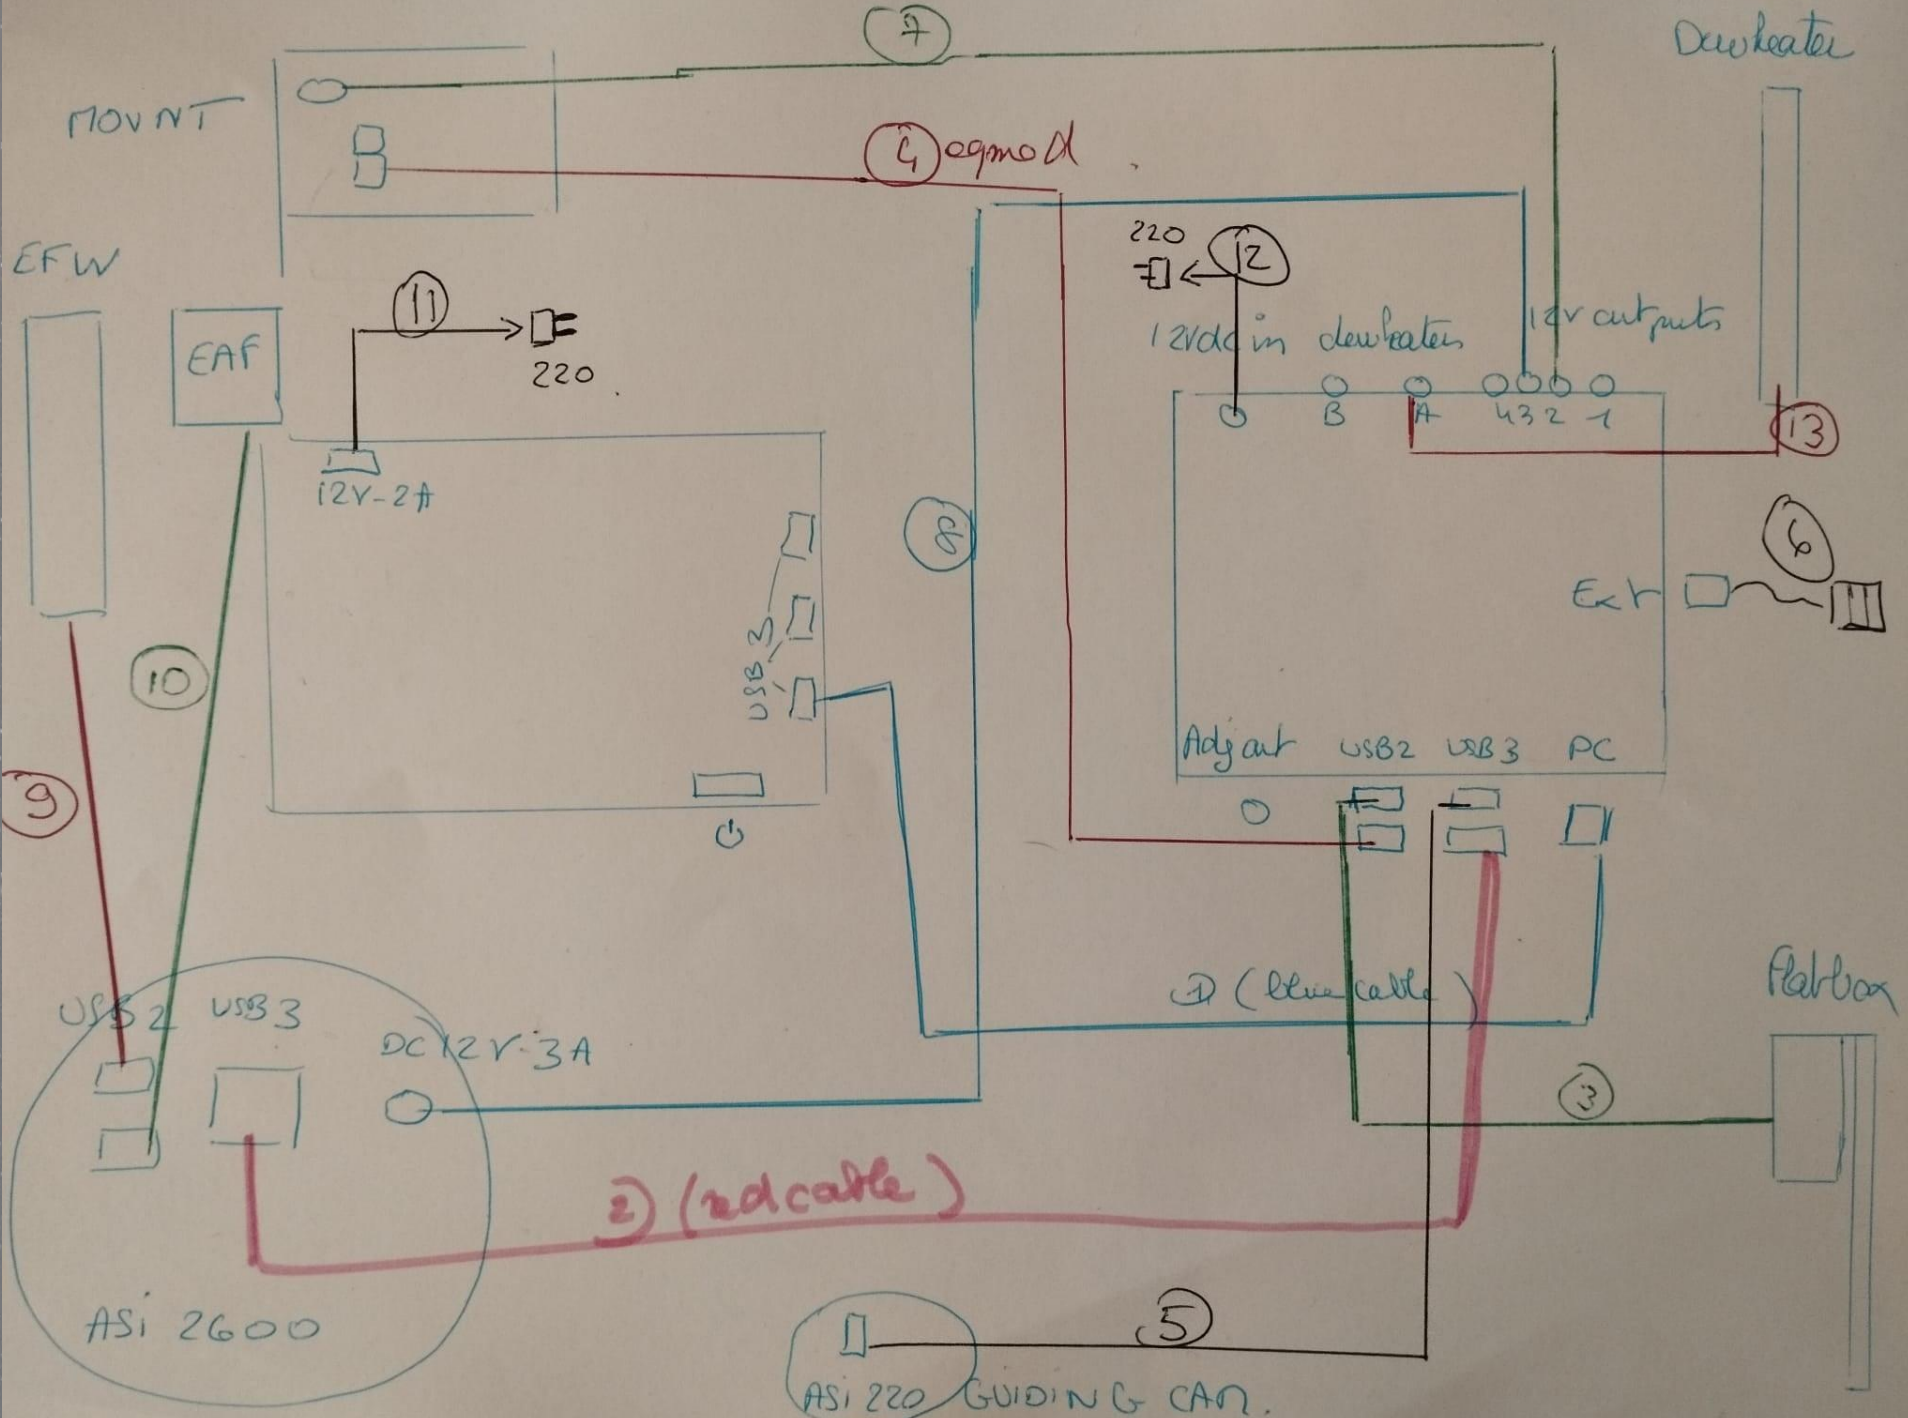 7
Dewheater
MOUNT
4 eqmod
220
12
EFW
11
12Vdc in dewheaters 12V outputs
EAF
220
B A 4 3 2 1
13
12V-2A
8
6
Ext
USB 3
10
Adj out USB2 USB3 PC
9
Flatbox
1) (blue cable)
USB2 USB3
DC 12V-3A
3
2) (red cable)
ASi 2600
5
ASi 220 GUIDING CAM.